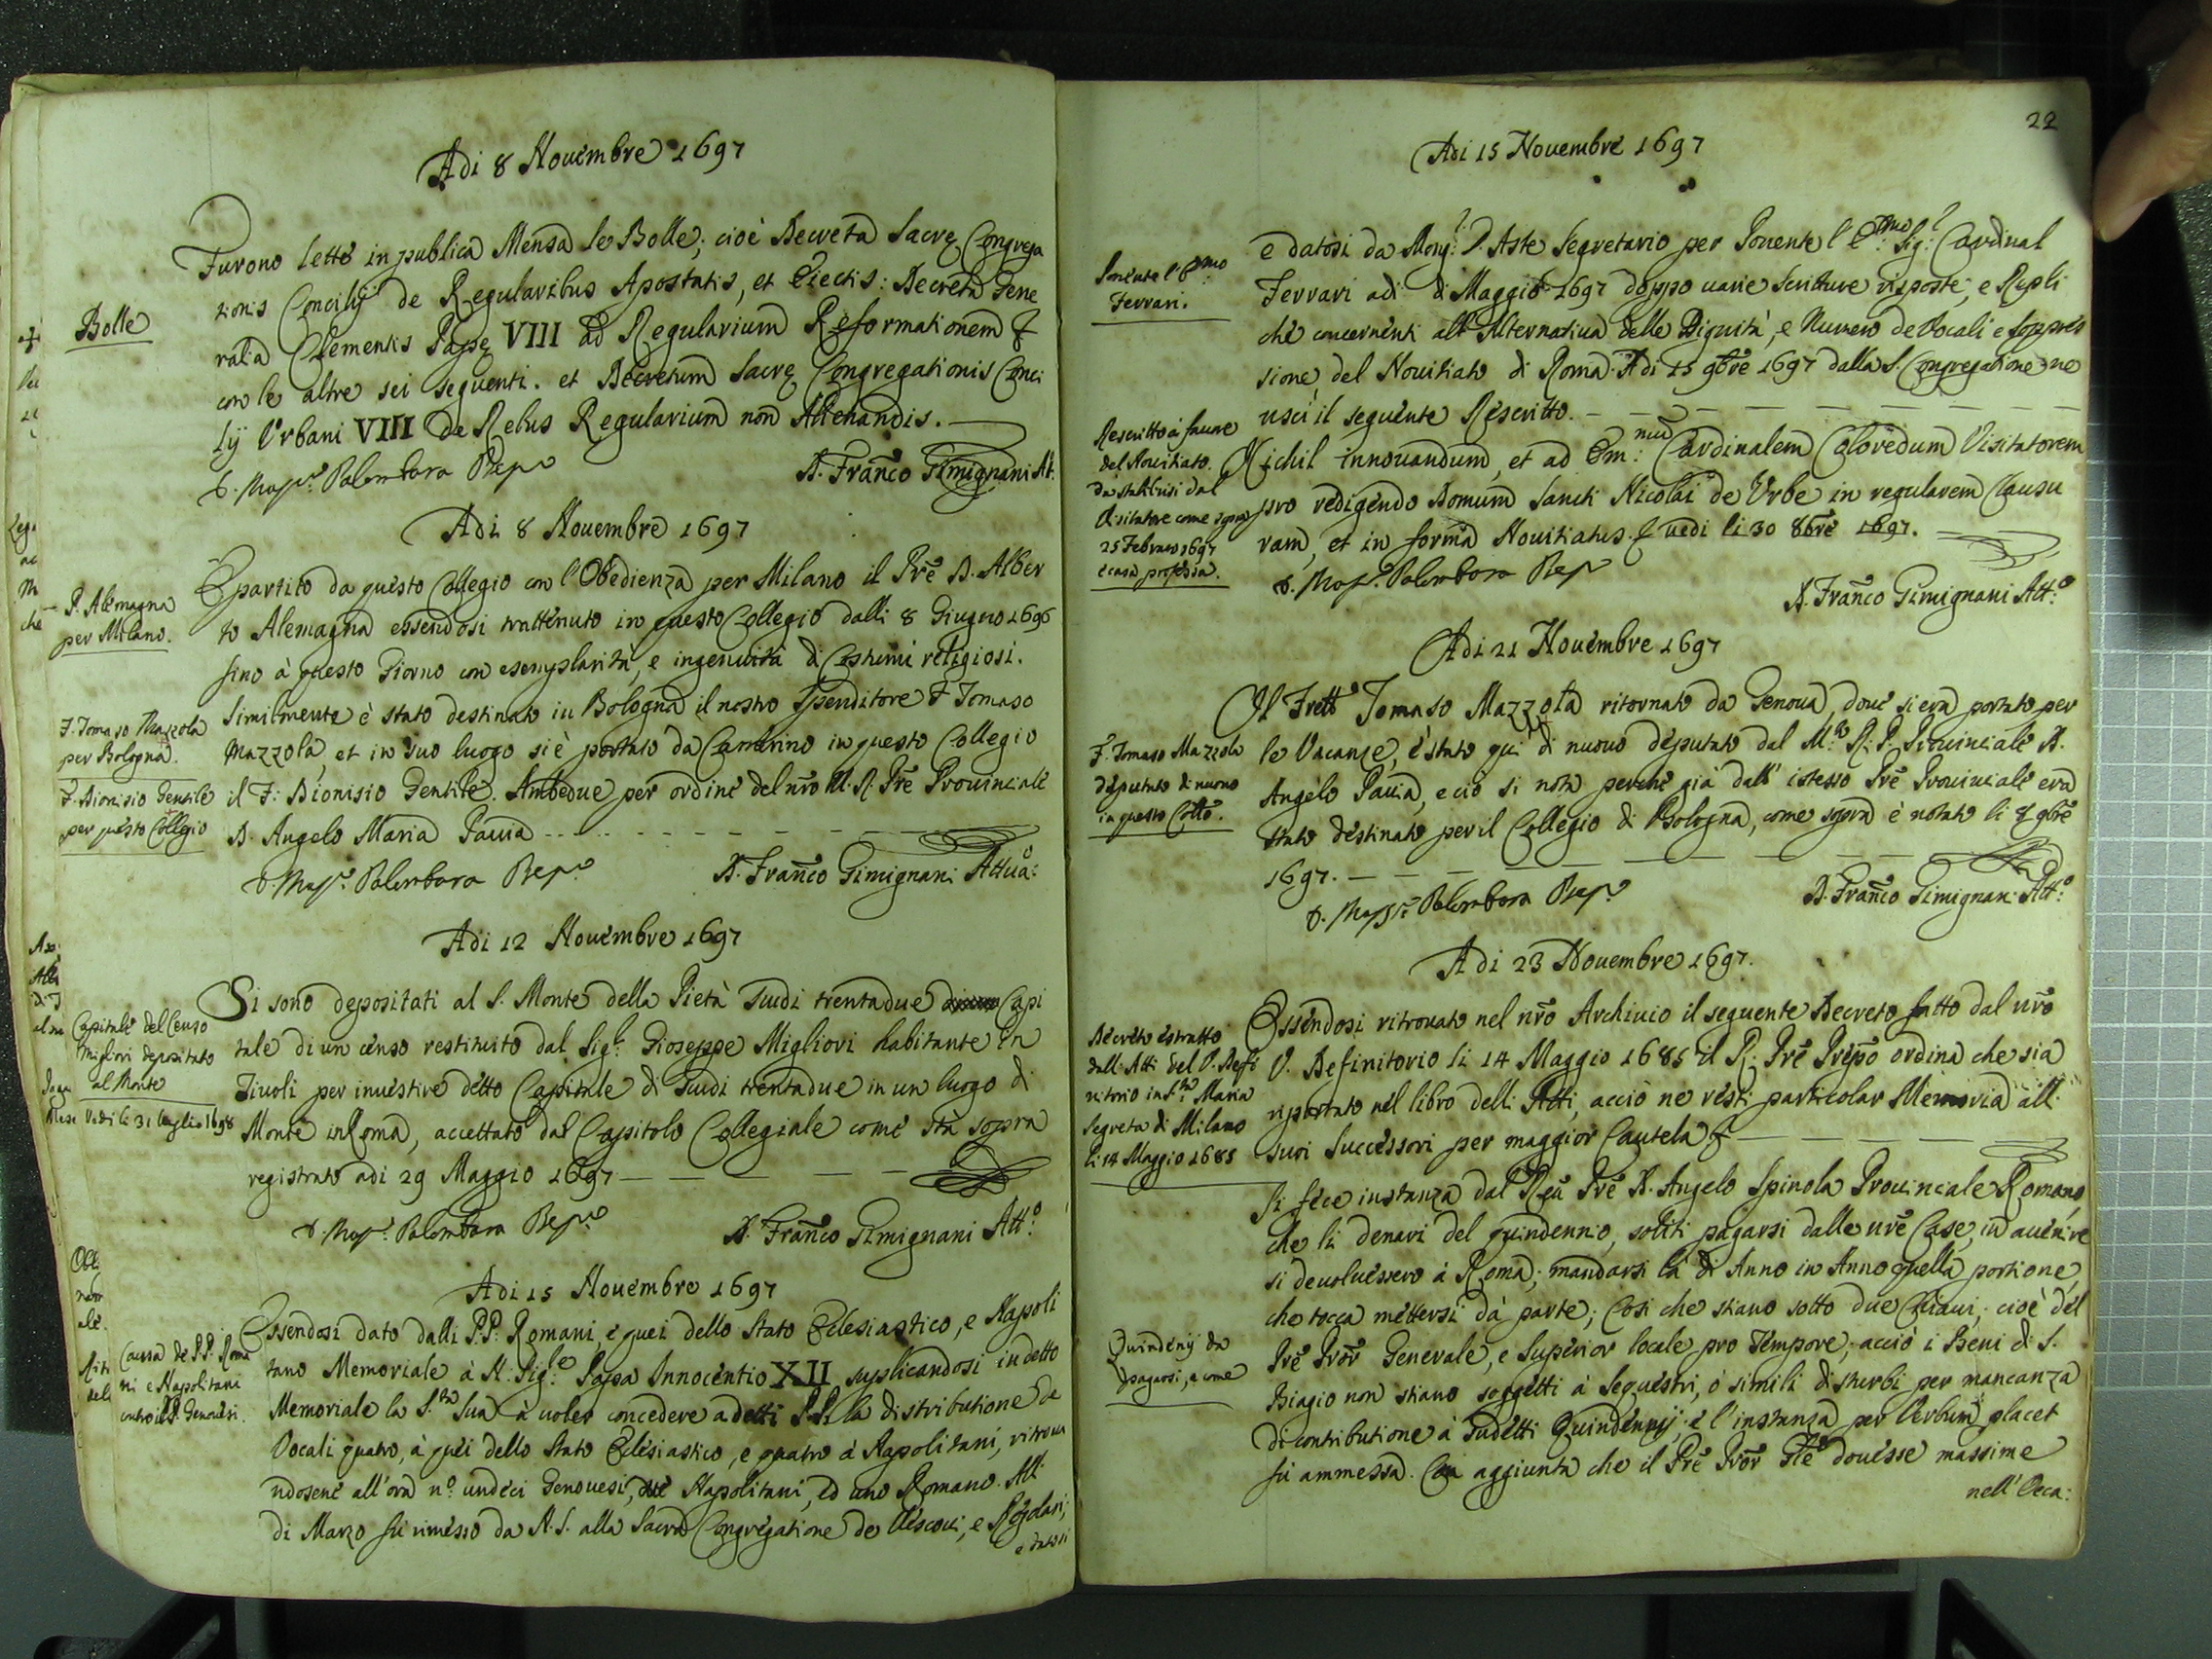 Adi 8 Nouembre 1697
Bolle
Furono lette in publica Mensa le Bolle; cioè Decreta Sacrę Congrega
tionis Concilij de Regularibus Apostatis, et Eiectis: Decreta Gene
ralia Clementis Papę VIII ad Regularium Reformationem &
con le altre sei seguenti. et Decretum Sacrę Congregationis Conci
lij Vrbani VIII de Rebus Regularium non Alienandis.
D. Mass.o Palombara Prep.o
D. Franco Gimignani Att.
Adi 8 Nouembre 1697
P. Alemagna
per Milano.
È partito da questo Collegio con l'Obedienza per Milano il Prẽ D. Alber
to Alemagna essendosi trattenuto in questo Collegio dalli 8 Giugno 1696
sino à questo Giorno con esemplarità, e ingenuità di Costumi religiosi.
F. Tomaso Mazzola
per Bologna.
F. Dionisio Gentile
per questo Collegio
Similmente è stato destinato in Bologna il nostro Spenditore F Tomaso
Mazzola, et in suo luogo si è portato da Camerino in questo Collegio
il F: Dionisio Gentile. Ambedue per ordine del nrõ M. R. Prẽ Prouinciale
D. Angelo Maria Pauia
D. Mass.o Palombara Prep.o
D. Franco Gimignani Attua:
Adi 12 Nouembre 1697
Capitale del Censo
Migliori depositato
al Monte
Vedi li 31 luglio 1698
Si sono depositati al S. Monte della Pietà Scudi trentadue Capi
tale di un censo restituito dal Sig.r Gioseppe Migliori habitante in
Tiuoli per inuestire detto Capitale di Scudi trentadue in un luogo di
Monte in Roma, accettato dal Capitolo Collegiale come stà sopra
registrato adi 29 Maggio 1697
D. Mass.o Palombara Prep.o
D. Franco Gimignani Att.o
Adi 15 Nouembre 1697
Causa de P.P. Roma
ni e Napolitani
contro i P.P. Genouesi.
Essendosi dato dalli P.P. Romani, e quei dello Stato Eclesiastico, e Napoli
tano Memoriale à N. Sig.re Papa Innocentio XII supplicandosi in detto
Memoriale la S.tà Sua à uoler concedere a detti P.P. la distributione de
Vocali quatro, à quei dello Stato Eclesiastico, e quatro à Napolitani, ritroua
ndosene all'ora n.o undeci Genouesi, due Napolitani, ed uno Romano. Alli
di Marzo fù rimesso da N. S. alla Sacra Congregatione de Vescoui, e Regolari;
e datosi
22
Adi 15 Nouembre 1697
Ponente l'E.mo
Ferrari.
e datosi da Mong.r D'Aste Segretario per Ponente l'E.mo Sig.r Cardinal
Ferrari adi di Maggio 1697 doppo uarie scritture risposte, e Repli
che concernenti all'Alternatiua delle Dignità, e Numero de Vocali e soppres
sione del Nouitiato di Roma. Adi 15 9bre 1697 dalla S. Congregatione ne
uscì il seguente Rescritto.
Rescritto à fauore
del Nouitiato.
da stabilirsi dal
Visitatore come sopra
25 Febraro 1697
e casa professa.
Nichil innouandum, et ad Em:mũ Cardinalem Coloredum Visitatorem
pro redigendo Domum Sancti Nicolai de Vrbe in regularem Clausu
ram, et in forma Nouitiatus. & uedi li 30 8bre 1697.
D. Mass.o Palombara Prep.o
D. Franco Gimignani Att.o
Adi 21 Nouembre 1697
F. Tomaso Mazzola
deputato di nuouo
in questo Coll.o.
Il Frãtto Tomaso Mazzola ritornato da Genoua, doue si era portato per
le Vacanze, è stato qui di nuouo deputato dal M.to R. P. Prouinciale D.
Angelo Pauia, e ciò si nota perche già dall'istesso Prẽ Prouinciale era
stato destinato per il Collegio di Bologna, come sopra è notato li 8 9bre
1697.
D. Mass.o Palombara Prep.o
D. Franco Gimignani Att.o
Adi 23 Nouembre 1697.
Decreto estratto
dall'Atti del V. Defi
nitorio in S.ta Maria
Segreta di Milano
li 14 Maggio 1685
Essendosi ritrouato nel nrõ Archiuio il seguente Decreto fatto dal nrõ
V. Definitorio li 14 Maggio 1685 il R. Prẽ Prepõ ordina che sia
riportato nel libro delli Atti, acciò ne resti particolar Memoria alli
suoi Successori per maggior Cautela &
Si fece instanza dal Reũ Prẽ D. Angelo Spinola Prouinciale Romano,
che li denari del quindennio, soliti pagarsi dalle nrẽ Case, in auenire
si deuoluessero à Roma; mandarsi là di Anno in Anno quella portione,
che tocca mettersi dà parte; Così che stiano sotto due Chiaui; cioè del
Quindenij da
pagarsi, e come
Prẽ Prõr Generale, e Superior locale pro tempore; acciò i Beni di S.
Biagio non stiano soggetti à sequestri, ò simili disturbi per mancanza
di contributione à sudetti Quindennij; e l'instanza per Verbum placet
fù ammessa. Con aggiunta che il Prẽ Prõr Gle douesse massime
nell'Occa: